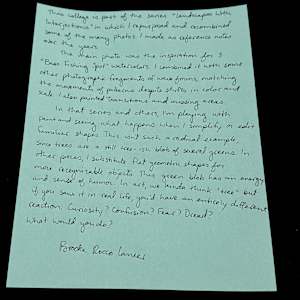 This collage is part of the series "Landscapes With
Interjections" in which I repurposed and recombined
some of the many photos I made as reference notes
over the years.
The main photo was the inspiration for 3
"Bass Fishing Spot" watercolors. I combined it with some
other photographic fragments of wave forms, matching
the movements of patterns despite shifts in color and
scale. I also painted transitions and missing areas.
In that series and others, I'm playing with
paint and seeing what happens when I simplify or color
familiar shapes. This is such a natural example,
since trees are a still scen-ish blob of several greens. In
other pieces, I substitute flat geometric shapes for
more recognizable objects. This green blob has an energy
and sense of humor. In art, we think "tree" but
if you saw it in real life, you'd have an entirely different
reaction: Curiosity? Confusion? Fear? Dread?
What would you do?
Brooke